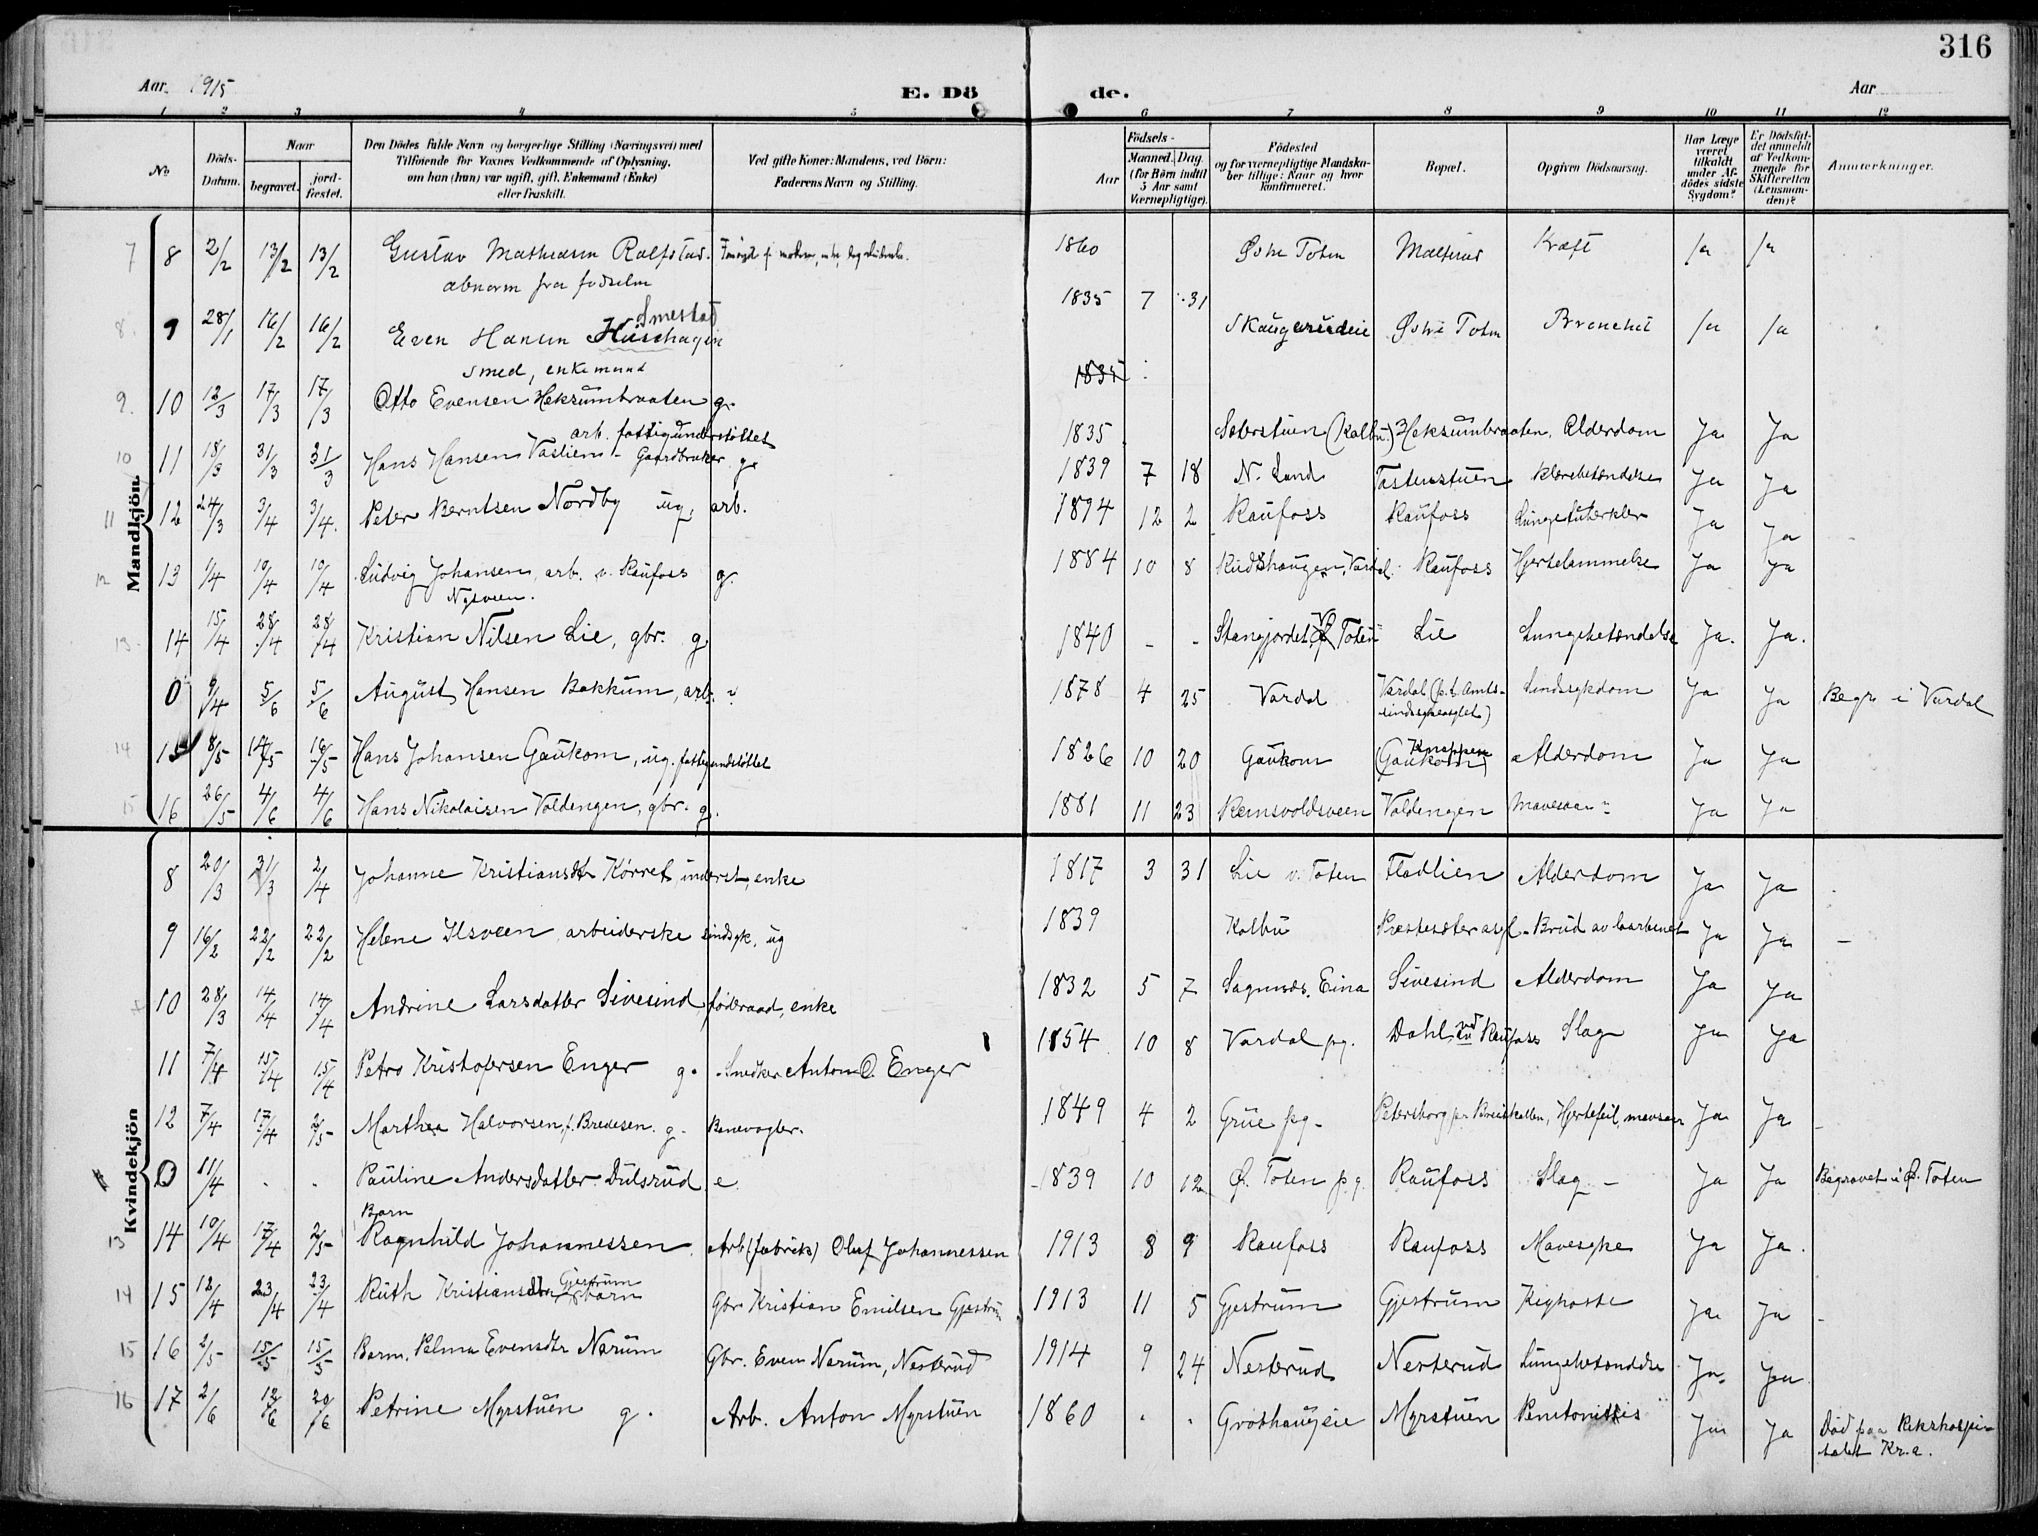 316
Aar 1915
E. Dö de.
Aar
1 2 3 4 5 6 7 8 9 10 11 12
No
Döds-Datum.
Naar
begravet.
jord-fæstet.
Den Dödes fulde Navn og borgerlige Stilling (Næringsvei) med
Tilföiende for Voxnes Vedkommende af Oplysning,
om han (hun) var ugift, gift, Enkemand (Enke)
eller fraskilt.
Ved gifte Koner: Mandens, ved Börn:
Faderens Navn og Stilling.
Födsels-
Aar
Maaned. Dag.
(for Börn indtil
5 Aar samt
Værnepligtige).
Födested
og for værnepligtige Mandska-
ber tillige: Naar og hvor
konfirmeret.
Bopæl.
Opgiven Dödsaarsag.
Har Læge
været
tilkaldt
under Af-
dödes sidste
Sygdom?
Er Dödsfal-
det anmeldt
af Vedkom-
mende for
Skifteretten
(Lensman-
den)?
Anmærkninger.
Mandkjön
7 8 2/2 13/2 13/2 Gustav Mathiasen Ralfstad. 1860 Østre Toten Kræft Ja Ja
abnorm fra fødselen
8. 9 28/1 16/2 16/2 Even Hansen Smestad 1835 7 31 Østre Toten Ja Ja
smed, enkemand 1835
9. 10 12/3 17/3 17/3 Otto Evensen Heksumbraaten g. 1835 (Kolbu) Heksumbraaten. Alderdom Ja Ja
arb. fattigunderstøttet
10 11 18/3 31/3 31/3 Hans Hansen Gaardbruker g. 1839 7 18 N. Land Ja Ja
11 12 24/3 3/4 3/4. Peter Berntsen Nordby ug, arb. 1894 12 2 Raufoss Raufoss Lungetuberkler Ja Ja
12 13 1/4 10/4 10/4 Ludvig Johansen, arb. v. Raufoss g. 1884 10 8 Raufoss Hjertelammelse Ja Ja
Nysveen.
13. 14 15/4 28/4 28/4 Kristian Nilsen Lie, gbr. g. 1840 - - Stangjordet, V. Toten Lie Lungebetændelse Ja. Ja.
0 9/4 5/6 5/6 August Hansen Bakkum, arb. 1878 4 25 Vardal Vardal (p.t. Amts-sindssykeasylet) Sindssykdom Ja Ja Begr. i Vardal
14 15 8/5 16/5 16/5 Hans Johansen Gaukom, ug. fattigunderstøttet 1826 10 20 Gaukom Knappen (Gaukom) Alderdom Ja Ja
15 16 26/5 4/6 4/6 Hans Nikolaisen Voldengen, gbr. g. 1881 11 23 Remsvoldsveen Voldengen Mavesaar Ja Ja
Kvindekjön
8 20/3 31/3 2/4 Johanne Kristiansdt Kørret, inderst, enke 1817 3 31 Lie v. Toten Fladlien Alderdom Ja Ja
9 16/2 22/2 22/2 Helene Ilsveen arbeiderske sindsyk, ug 1839 Kolbu Præstesæter asyl. Brud av laarbenet Ja Ja -
10 28/3 14/4 14/4 Andrine Larsdatter Sivesind, føderaad, enke 1832 5 7 Sagnnæs, Eina Sivesind Alderdom Ja Ja
11 7/4 15/4 15/4 Petra Kristofersen Enger g. Snedker Anton O. Enger 1854 10 8 Vardal pg. Dahl, ved Raufoss Slag Ja Ja
12 7/4 17/4 2/5 Marthea Halvorsen, f. Bredesen. g. Banevogter. 1849 4 2 Grue pg. Petersborg pr Breiskallen, Hjertefeil, mavesaar Ja Ja -
0 11/4 . . Pauline Andersdatter Dulsrud, e 1839 10 12 Ø. Toten p.g. Raufoss Slag - Ja Ja Begravet i Ø. Toten
Barn
13 14 10/4 17/4 2/5 Ragnhild Johannessen Arb (fabriks) Oluf Johannessen 1913 8 9 Raufoss Raufoss Mavesyke Ja Ja.
14 15 12/4 23/4 23/4 Ruth Kristiansdtr Gjestrum barn Gbr Kristian Emilsen Gjestrum 1913 11 5 Gjestrum Gjestrum Kighoste Ja Ja -
15 16 2/5 15/5 15/5 Barn. Palma Evensdtr Narum Gbr. Even Narum, Nesterud 1914 9 24 Nesterud Nesterud Lungebetændelse Ja. Ja
16 17 2/6 12/6 20/6 Petrine Myrstuen g. Arb. Anton Myrstuen 1860 . . Grøthaugeie Myrstuen Ja Ja Død paa Rikshospi-
talet Kr.a.